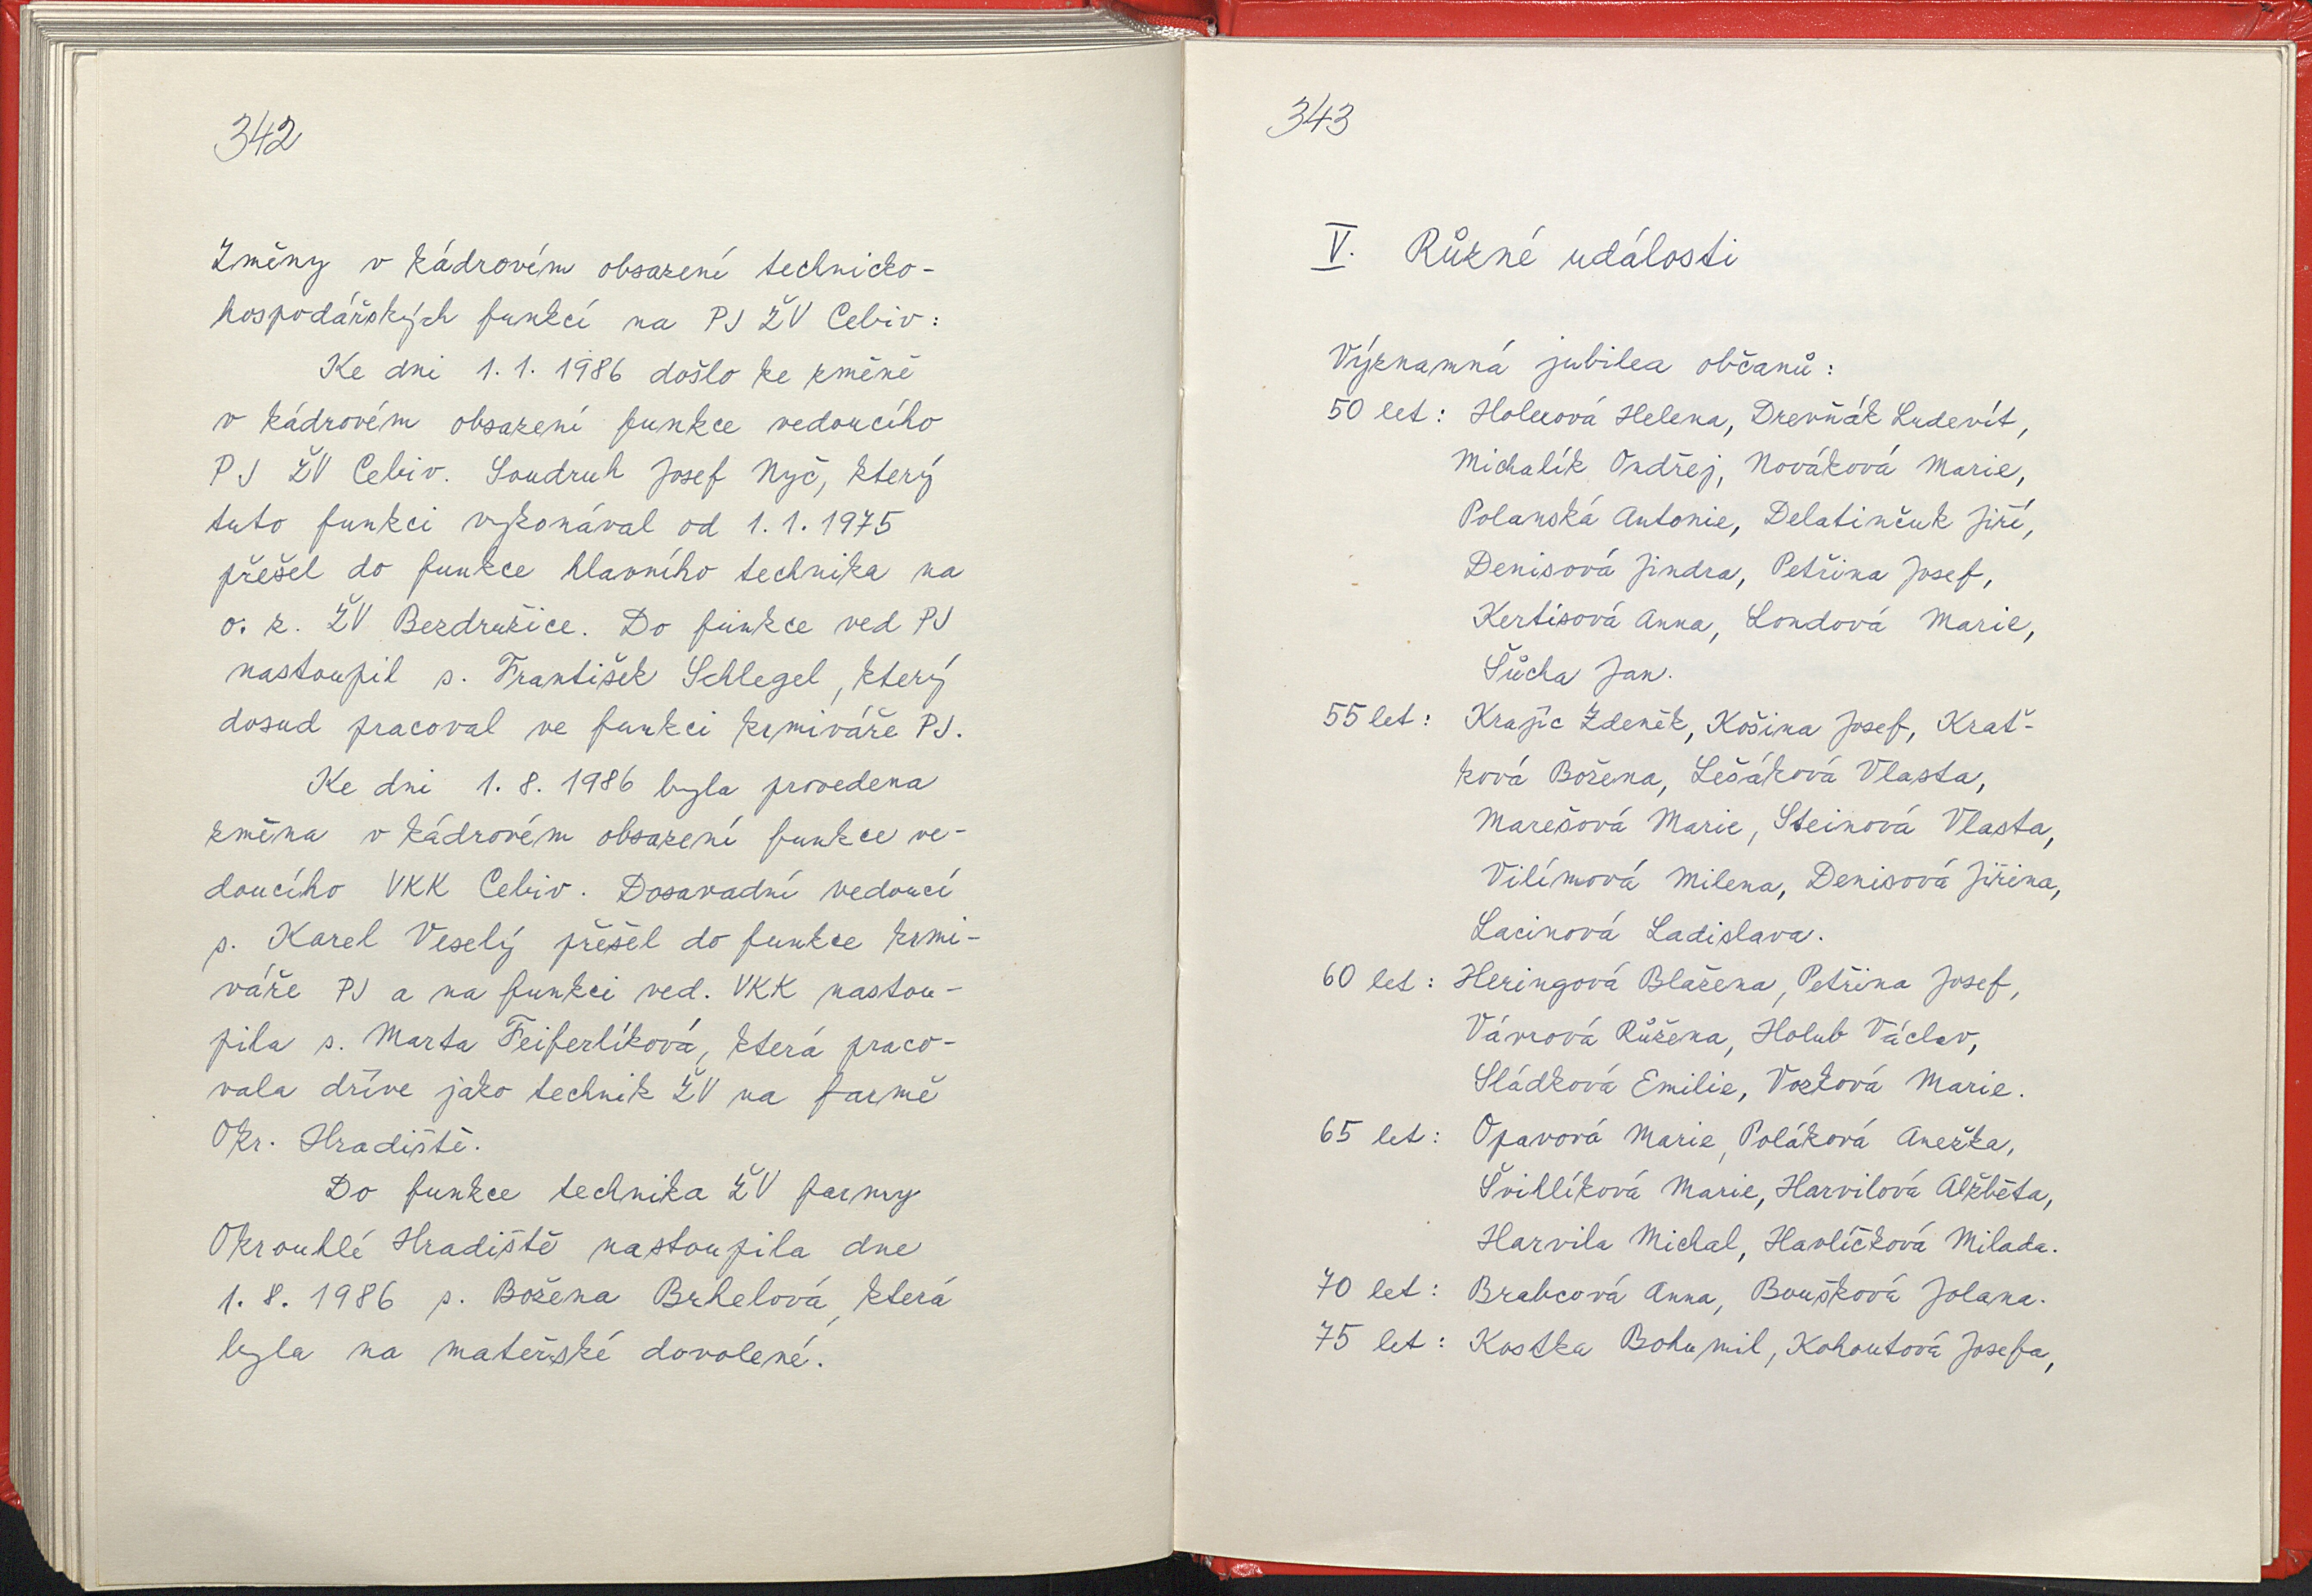 342
Změny v kádrovém obsazení technicko-
hospodářských funkcí na PJ ŽV Cebiv:
Ke dni 1. 1. 1986 došlo ke změně
v kádrovém obsazení funkce vedoucího
PJ ŽV Cebiv. Soudruh Josef Nyč, který
tuto funkci vykonával od 1. 1. 1975
přešel do funkce hlavního technika na
o. z. ŽV Bezdružice. Do funkce ved PJ
nastoupil s. František Schlegel, který
dosud pracoval ve funkci krmiváře PJ.
Ke dni 1. 8. 1986 byla provedena
změna v kádrovém obsazení funkce ve-
doucího VKK Cebiv. Dosavadní vedoucí
s. Karel Veselý přešel do funkce krmi-
váře PJ a na funkci ved. VKK nastou-
pila s. Marta Feiferlíková, která praco-
vala dříve jako technik ŽV na farmě
Okr. Hradiště.
Do funkce technika ŽV farmy
Okrouhlé Hradiště nastoupila dne
1. 8. 1986 s. Božena Brhelová, která
byla na mateřské dovolené.
343
V. Různé události
Významná jubilea občanů:
50 let: Helena, Drevňák Ludevít,
Michalík Ondřej, Nováková Marie,
Polanská Antonie, Delatinčuk Jiří,
Denisová Jindra, Petřina Josef,
Kertisová Anna, Londová Marie,
Šůcha Jan.
55 let: Krajíc Zdeněk, Košina Josef, Krať-
ková Božena, Lešáková Vlasta,
Marešová Marie, Steinová Vlasta,
Vilímová Milena, Denisová Jiřina,
Lacinová Ladislava.
60 let: Heringová Blažena, Petřina Josef,
Vávrová Růžena, Holub Václav,
Sládková Emilie, Voktová Marie.
65 let: Opavová Marie, Poláková Anežka,
Švihlíková Marie, Harvilová Alžběta,
Harvila Michal, Havlíčková Milada.
70 let: Brabcová Anna, Boušková Jolana.
75 let: Kostka Bohumil, Kohoutová Josefa,